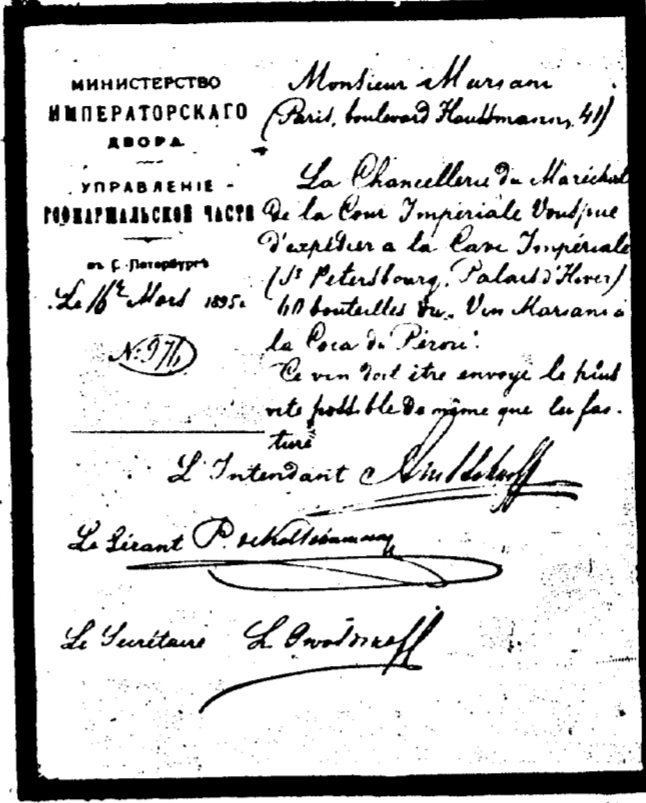 МИНИСТЕРСТВО
ИМПЕРАТОРСКАГО
ДВОРА
УПРАВЛЕНІЕ
ГОФМАРШАЛЬСКОЙ ЧАСТИ
въ С.-Петербургѣ
Le 16 Mars 1895.
№: 976
Monsieur Mariani
(Paris, boulevard Haussmann, 41)
La Chancellerie du Maréchal
de la Cour Impériale Vous prie
d'expédier a la Cave Impériale
(St Petersbourg, Palais d'Hiver)
bouteilles du "Vin Mariani à
la Coca du Pérou".
Ce vin doit être envoyé le plus
vite possible de même que la fac-
ture
L'Intendant
Le Gérant P. de
Le Secrétaire